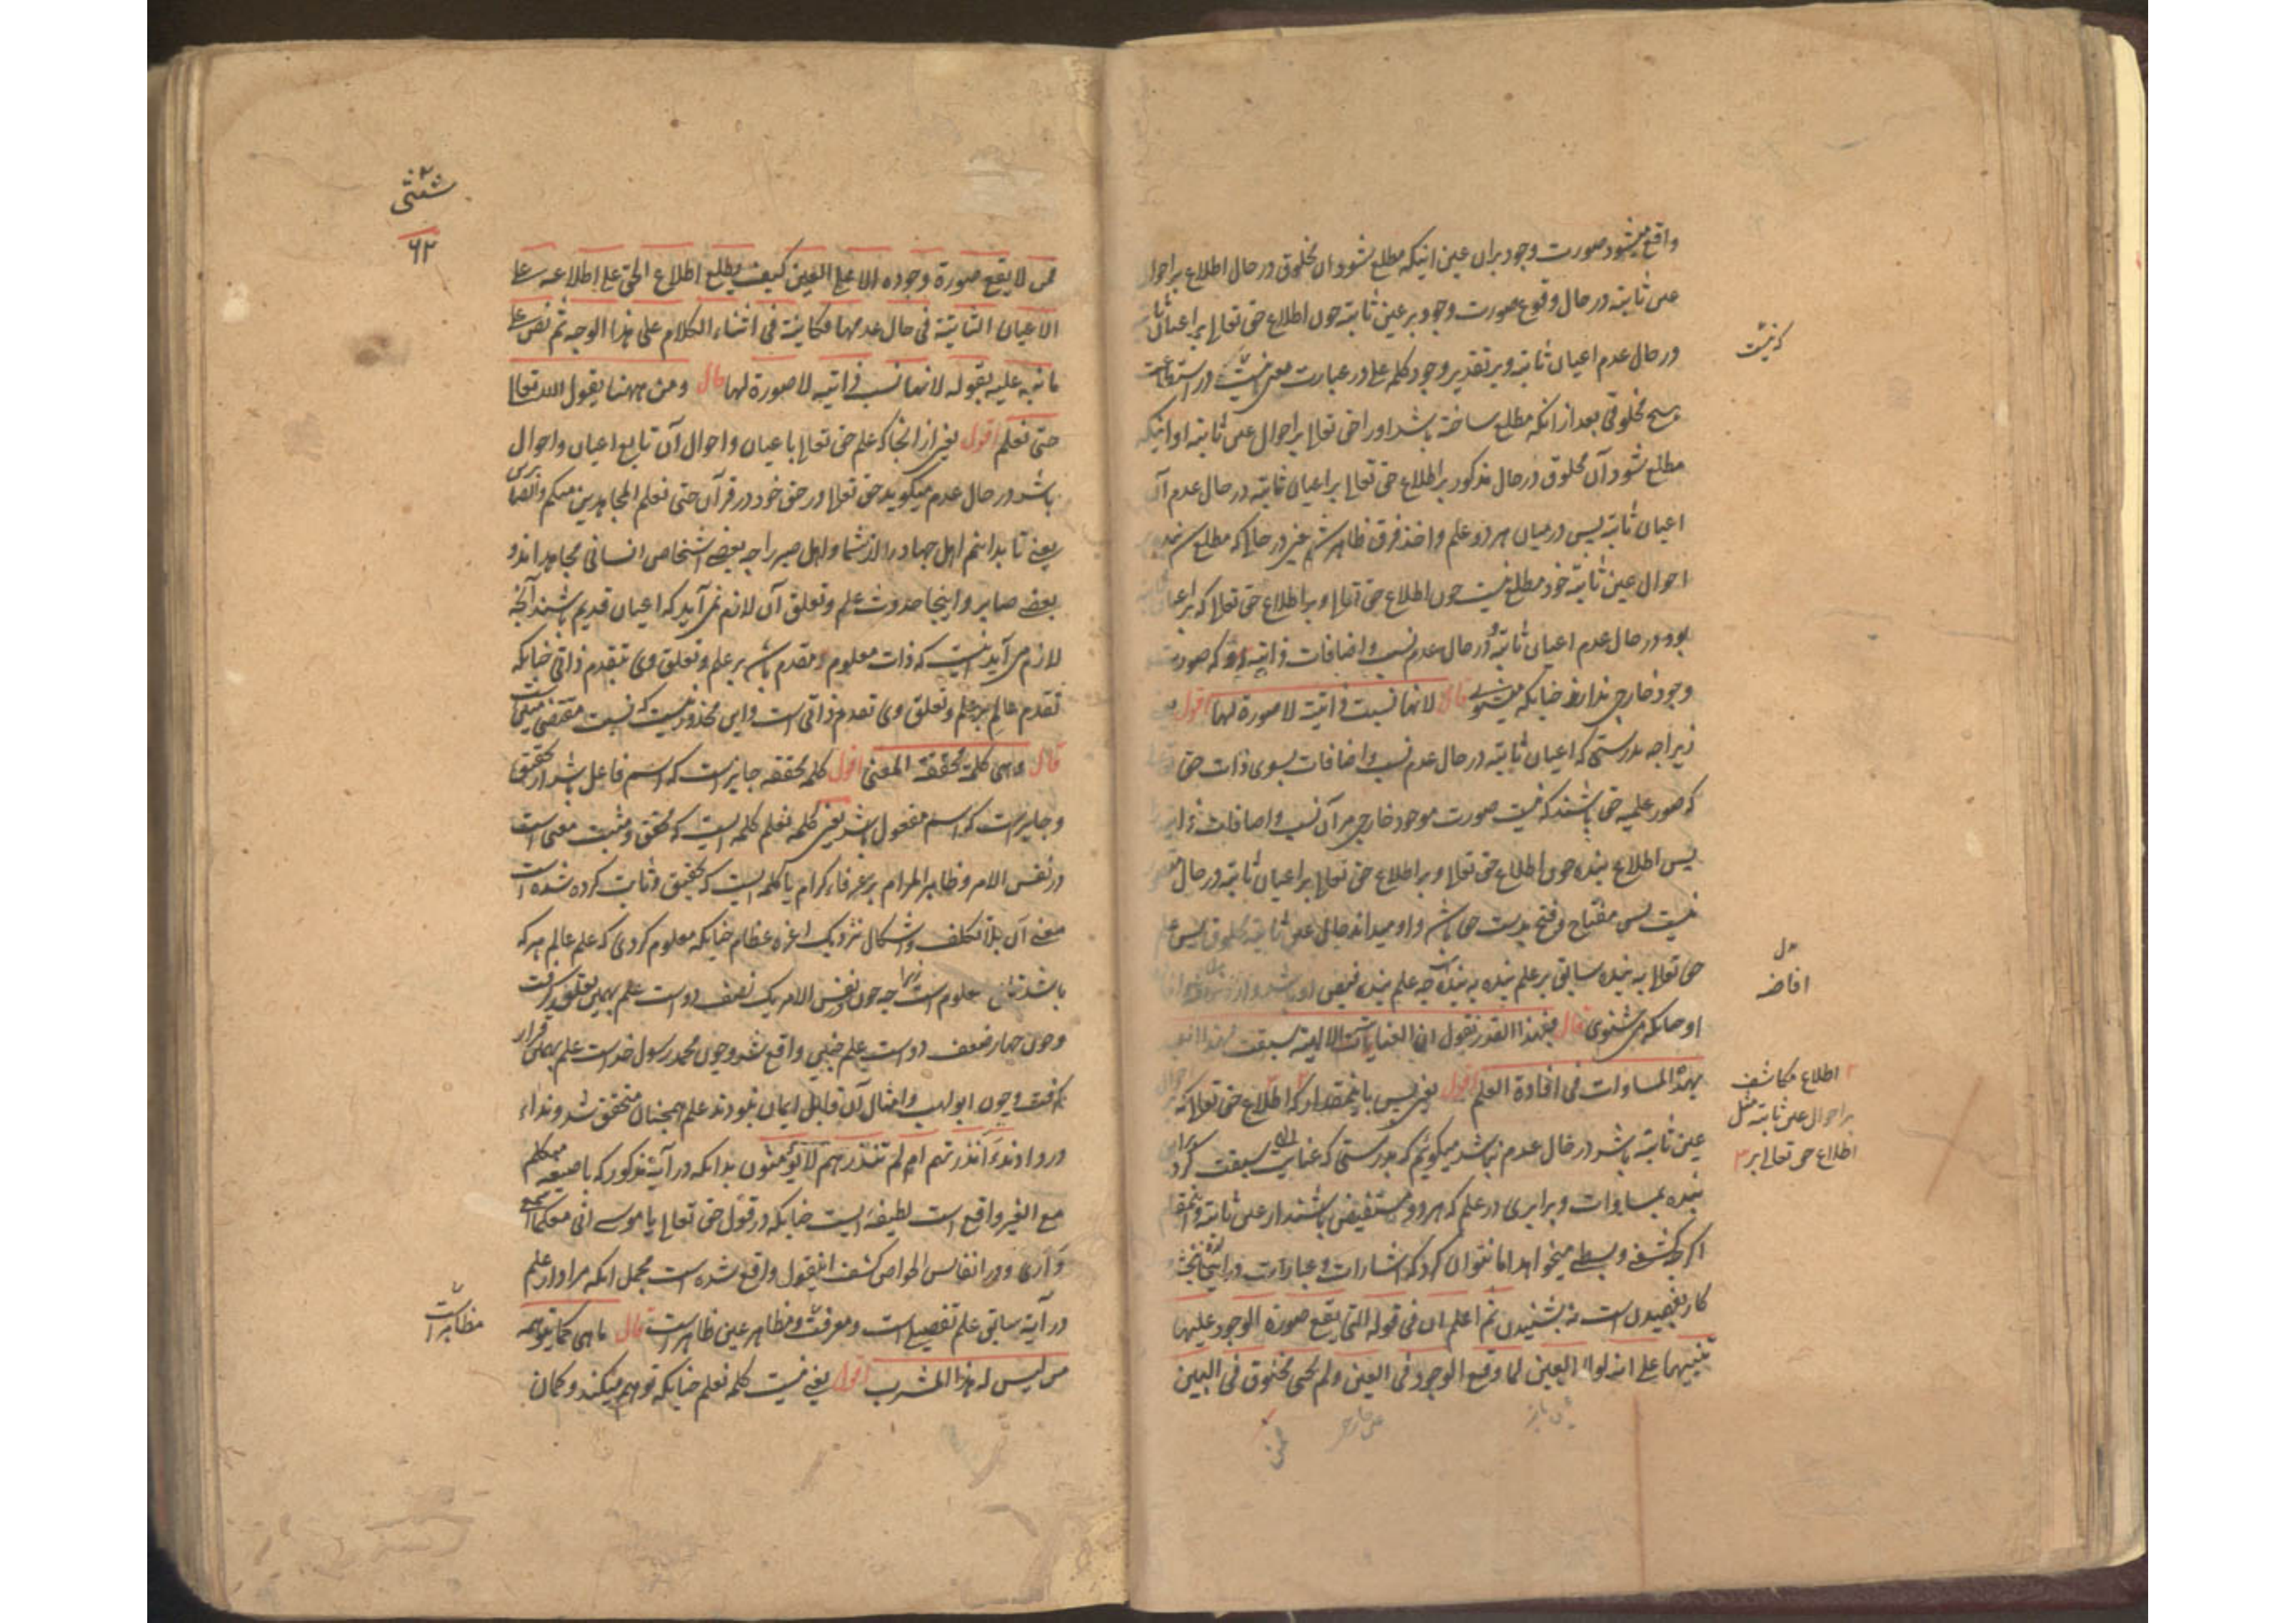 واقع میشود صورت وجود بران عین اینکه مطلع شود آن مخلوق در حال اطلاع بر احوال
عین ثابته در حال وقوع صورت وجود بر عین ثابته چون اطلاع حق تعالی بر اعیان ثابته
در حال عدم اعیان ثابته و بر تقدیر وجود کلمه علی در عبارت معنی در استطاعت
هیچ مخلوقی بعد از انکه مطلع ساخته باشد او را حق تعالی بر احوال عین ثابته او اینکه
مطلع شود آن مخلوق در حال مذکور بر اطلاع حق تعالی بر اعیان ثابته در حال عدم آن
اعیان ثابته پس در میان هر دو علم و اخذ فرق ظاهر شد یعنی در حالی که مطلع شد بنده بر
احوال عین ثابته خود مطلع نیست چون اطلاع حق تعالی و بر اطلاع حق تعالی که بر اعیان
بود در حال عدم اعیان ثابته و در حال عدم نسب و اضافات ذاتیه که صورت
وجود خارجی ندارند چنانکه قال لانها نسبت ذاتیة لا صورة لها اقول یعنی
زیراچه بدرستی که اعیان ثابته در حال عدم نسب و اضافات بسوی ذات حق
که صور علمیه حق باشند که نیست صورت موجود خارجی مر آن نسب و اضافات
پس اطلاع بنده چون اطلاع حق تعالی و بر اطلاع حق تعالی بر اعیان ثابته در حال
نیست پس مفتاح و فتح بدست حق باشد و او میداند حال عین ثابته مخلوق پس علم
حق تعالی به بنده سابق بر علم بنده به بنده چه علم بنده فیض
او چنانکه می شنوی قال فبهذا القدر نقول ان العنایات الالهیه سبقت لهذا العبد
بهذه المساوات فی افادة العلم اقول یعنی پس باینمقدار که اطلاع حق تعالی که بر
عین ثابته باشد در حال عدم نباشد میگوئیم که بدرستی که عنایت سبقت کرد
بنده بمساوات و برابری در علم که هر دو مستفیض باشند از عین ثابته و اینمقام
اگرچه کشفی و بسطی میخواهد اما نتوان کرد که اشارات و عبارات در اینجا
کار بفهمیدن است نه بشنیدن ثم اعلم ان فی قوله التی یقع صورة الوجود علیها
تنبیها علی انه لولا العین لما وقع الوجود فی العین و لم یکن مخلوق فی البین
که نیست
افاضه
اطلاع مکاشف
بر احوال عین ثابته مثل
اطلاع حق تعالی بر
۶۲
فمن لا یقع صورة وجوده الا علی العین کیف یطلع اطلاع الحق علی اطلاعه علی
الاعیان الثابتة فی حال عدمها فکانیة فی اثناء الکلام علی هذا الوجه ثم نص علی
ما نبه علیه بقوله لانها نسب ذاتیه لا صورة لها قال ومن ههنا یقول الله تعالی
حتی نعلم اقول یعنی از انجا که علم حق تعالی با عیان و احوال آن تابع اعیان و احوال
باشد در حال عدم میگوید حق تعالی در حق خود در قرآن حتی نعلم المجاهدین منکم والصابرین
یعنی تا بدانیم اهل جهاد را از شما و اهل صبر را چه بعضی اشخاص انسانی مجاهد اند و
بعضی صابر و اینجا حدوث علم و تعلق آن لازم نمی آید که اعیان قدیم باشند آنچه
لازم می آید اینست که ذات معلوم مقدم باشد بر علم و تعلق وی بتقدم ذاتی چنانکه
تقدم عالم بر علم و تعلق وی تقدم ذاتی است و این محذور نیست که نسبت مقتضی
قال وهی کلمة محققة المعنی اقول کلمه محققه جایز است که اسم فاعل باشد از تحقیق
و جایز است که اسم مفعول باشد یعنی کلمه نعلم کلمه ایست که محقق و مثبت معنی است
در نفس الامر و ظاهر المرام بر عرفاء کرام یا کلمه ایست که تحقیق و ثابت کرده شده است
معنی آن بلا تکلف و اشکال نزدیک اعزه عظام چنانکه معلوم کردی که علم عالم هر که
باشد معلوم است چه چون در نفس الامر یک نصف دو است علم بهمین تعلق گرفت
و چون چهار ضعف دو است علم چنین واقع شد و چون محمد رسول خداست علم بهمان قرار
گرفت و چون ابولهب و امثال آن قابل ایمان نبودند علم همچنان متحقق شد و نداء
در دادند ءانذرتهم ام لم تنذرهم لا یؤمنون بدانکه در آیه مذکور که با صیغه متکلم
مع الغیر واقع است لطیفه ایست چنانکه در قول حق تعالی یا موسی انی معکما اسمع
و اری و در انفاس الخواص کشف اینقول واقع شده است مجمل انکه مراد از علم
در آیه سابق علم تفصیلی است و معرفت و مظاهر عین ظاهر است قال ما هی کما توهمه
من لیس له هذا المشرب اقول یعنی نیست کلمه نعلم چنانکه توهم میکند و گمان
مظاهر است